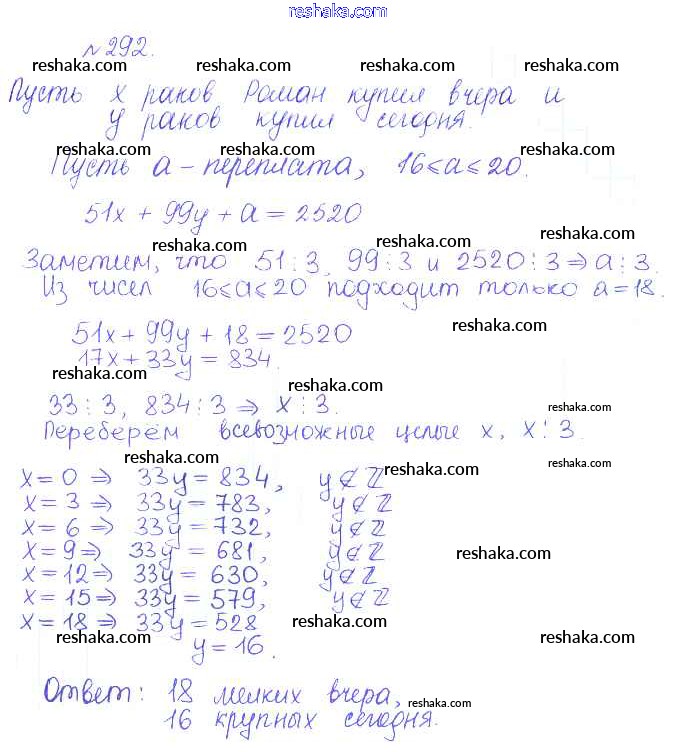 reshaka.com
№292.
reshaka.com reshaka.com reshaka.com
Пусть x раков Роман купил вчера и
y раков купил сегодня.
reshaka.com reshaka.com reshaka.com
Пусть a – переплата, 16 ⩽ a ⩽ 20.
51x + 99y + a = 2520
reshaka.com reshaka.com reshaka.com
Заметим, что 51⋮3, 99⋮3 и 2520⋮3 ⇒ a⋮3.
Из чисел 16 ⩽ a ⩽ 20 подходит только a = 18.
51x + 99y + 18 = 2520
reshaka.com
17x + 33y = 834.
reshaka.com
33⋮3, 834⋮3 ⇒ x⋮3.
reshaka.com
Переберём всевозможные целые x, x⋮3.
reshaka.com
x = 0 ⇒ 33y = 834, y∉Z
reshaka.com
x = 3 ⇒ 33y = 783, y∉Z
x = 6 ⇒ 33y = 732, y∉Z
x = 9 ⇒ 33y = 681, y∉Z
reshaka.com
x = 12 ⇒ 33y = 630, y∉Z
x = 15 ⇒ 33y = 579, y∉Z
x = 18 ⇒ 33y = 528
reshaka.com reshaka.com reshaka.com
y = 16.
Ответ: 18 мелких вчера,
reshaka.com
16 крупных сегодня.